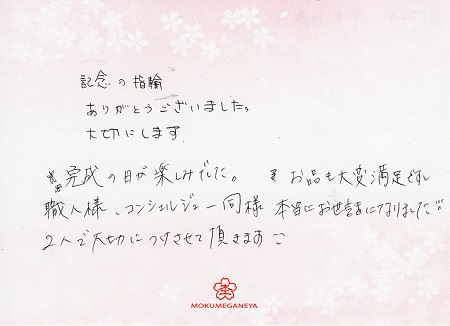 記念の指輪
ありがとうございました。
大切にします
完成の日が楽しみでした。 お品も大変満足ですし
職人様、コンシェルジュ一同様 本当にお世話になりました。
2人で大切につけさせて頂きます
MOKUMEGANEYA